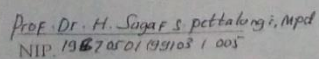 Prof. Dr. H. Sagaf S. Pettalongi, Mpd
NIP. 19670501 199103 1 005